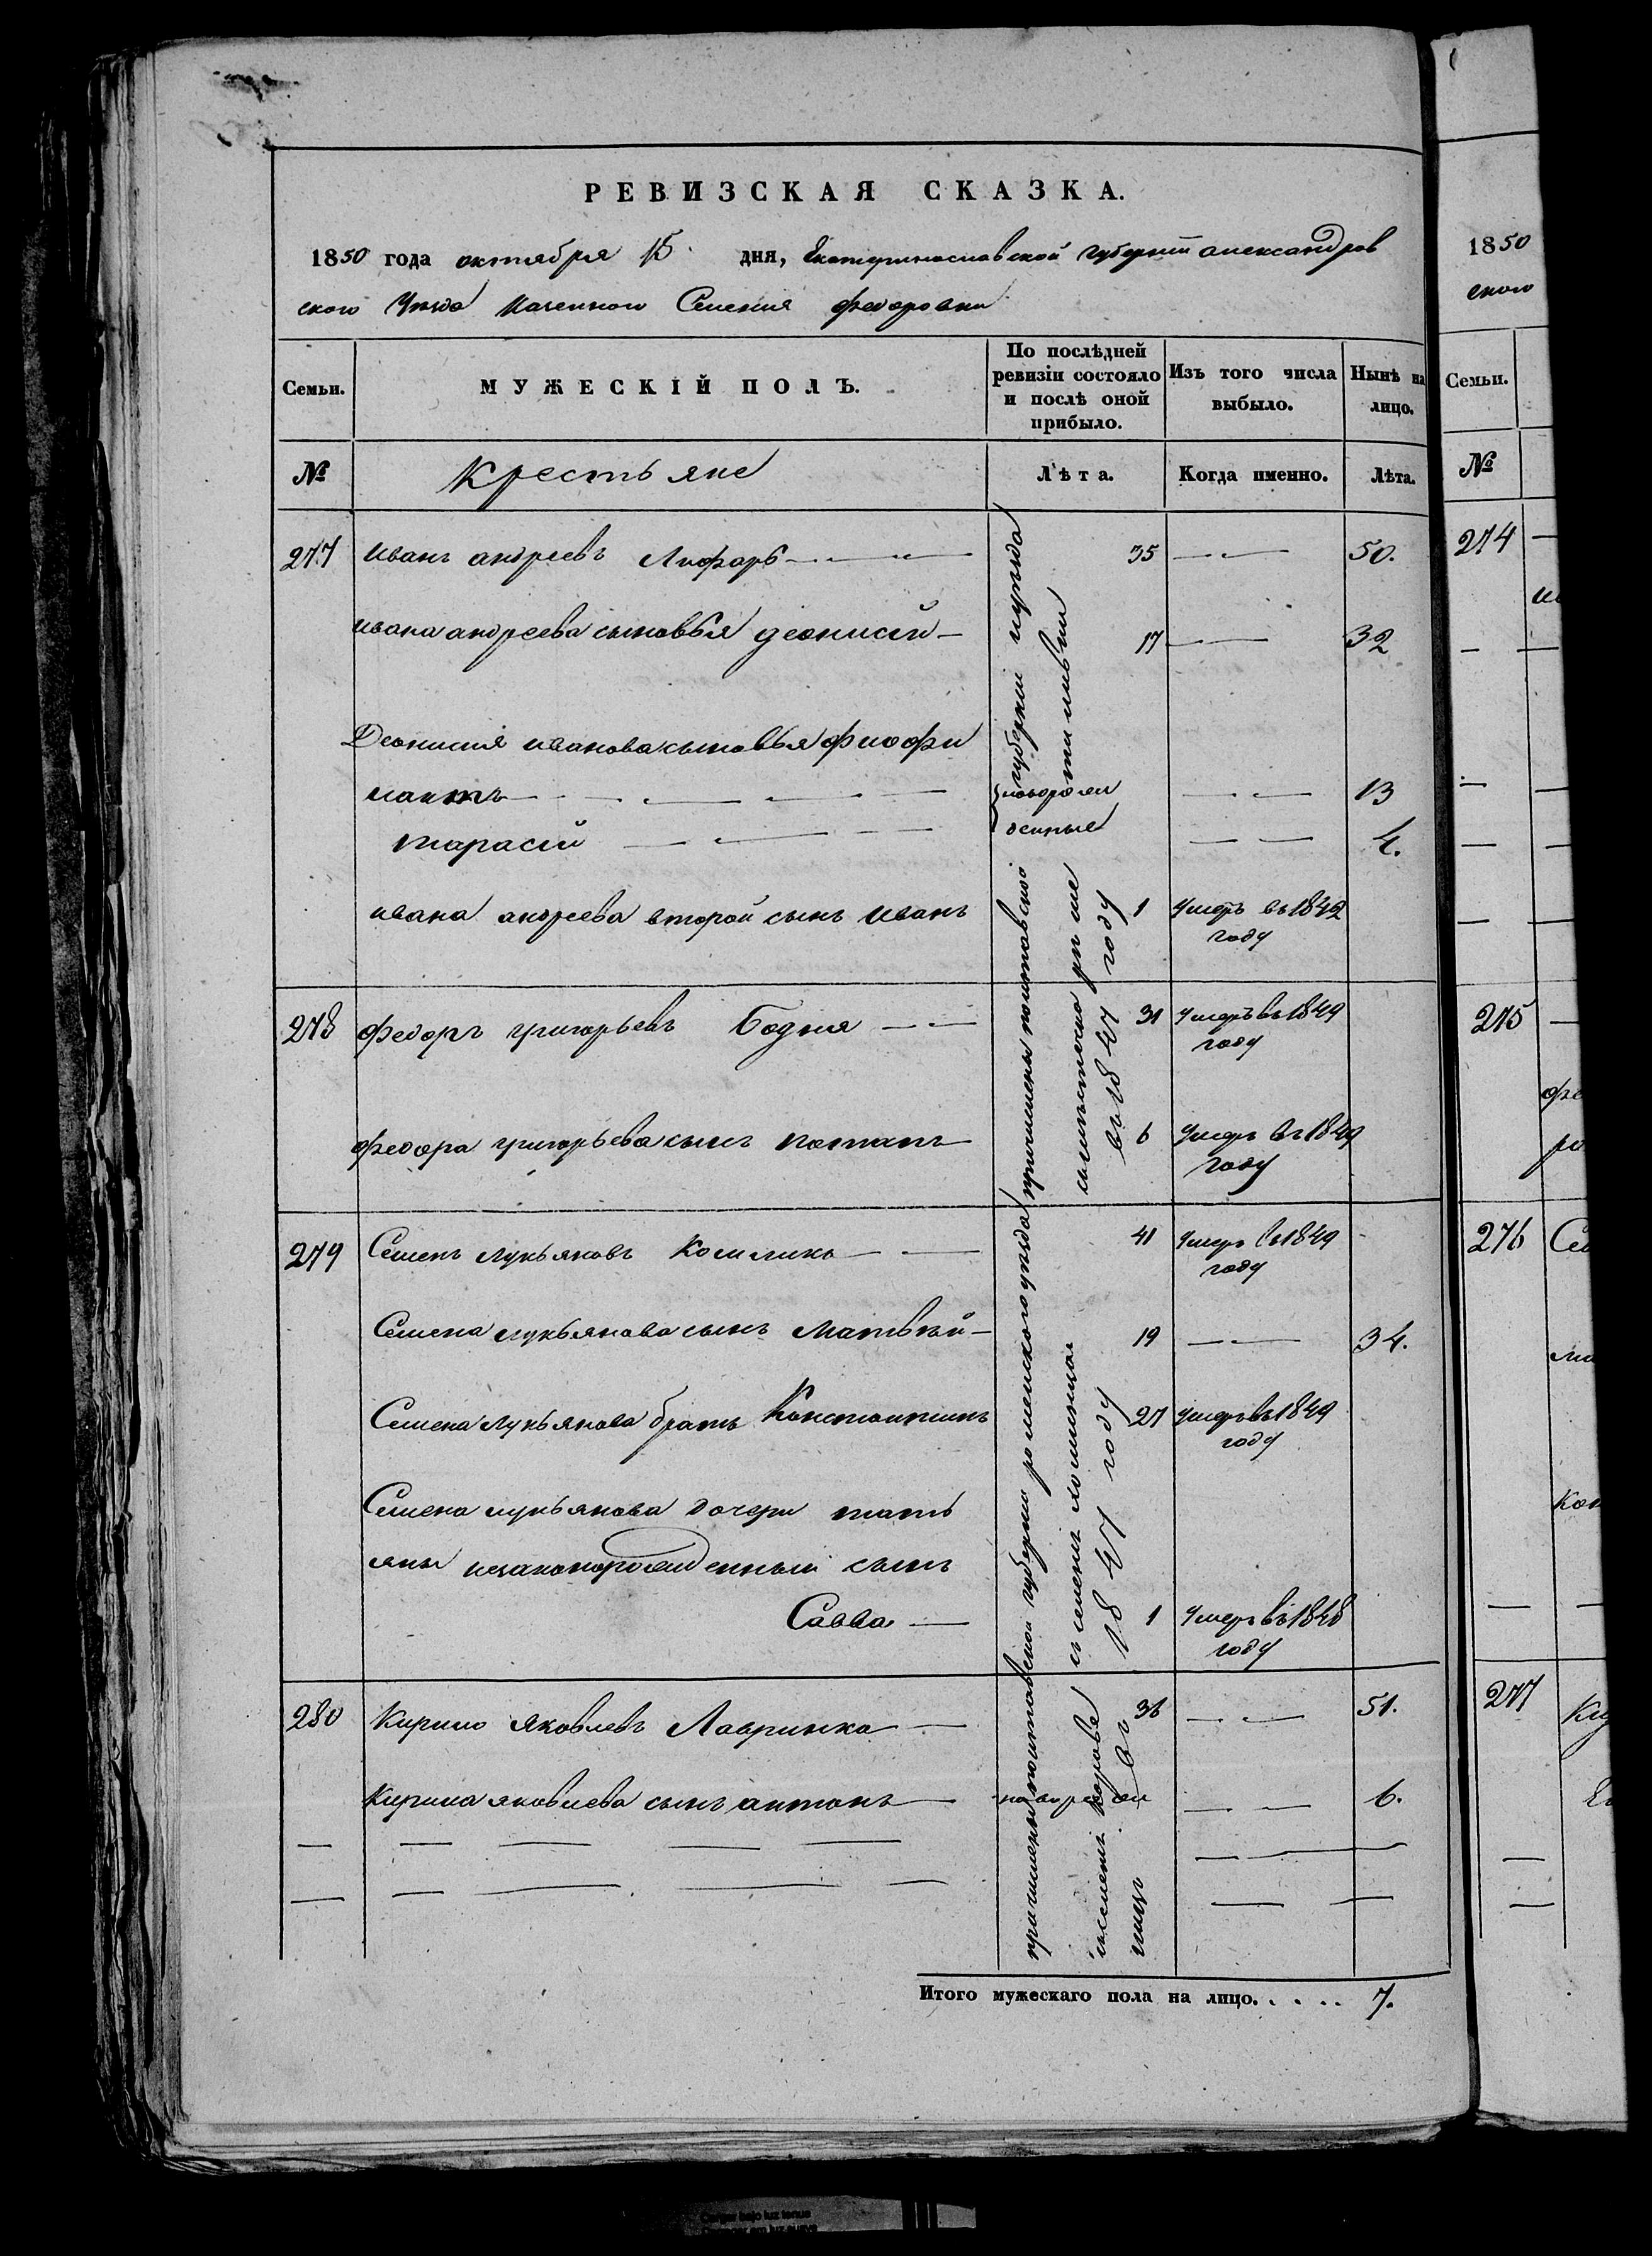 РЕВИЗСКАЯ СКАЗКА.
1850 года октября 15 дня, Екатеринославской губернии александров
ского Уезда Казенного Селения федоровки
Семьи.
МУЖЕСКІЙ ПОЛЪ.
По послѣдней ревизіи состояло и послѣ оной прибыло.
Изъ того числа выбыло.
Нынѣ на лицо.
№
Крестьяне
Лѣта.
Когда именно.
Лѣта.
277 иванъ андреевъ Лифарь 35 50.
ивана андреева сыновья деонисій 17 32
Деонисія иванова сыновья фиофи
лактъ 13
новорожденные
тарасій 4.
ивана андреева второй сынъ иванъ 1 умеръ въ 1842
году
278 федоръ григорьевъ Бодня 31 умеръ въ 1849
году
федора григорьева сынъ потапъ 6 умеръ въ 1849
году
279 Семенъ лукьяновъ 41 умеръ въ 1849
году
Семена лукьянова сынъ матвѣй 19 34.
Семена лукьянова братъ Константинъ 27 умеръ въ 1849
году
Семена лукьянова дочери тать
яны незаконорожденный сынъ
Савва 1 умеръ въ 1848
году
280 Кирило Яковлевъ Лавринко 36 51.
Кирила яковлева сынъ антонъ 6.
причислены полтавской губерніи
въ 1847 году
причислены полтавской губерніи роменского уѣзда
1847 году
Итого мужескаго пола на лицо. . . . . 7.
1850
ского
Семьи.
№
274
275
276
277